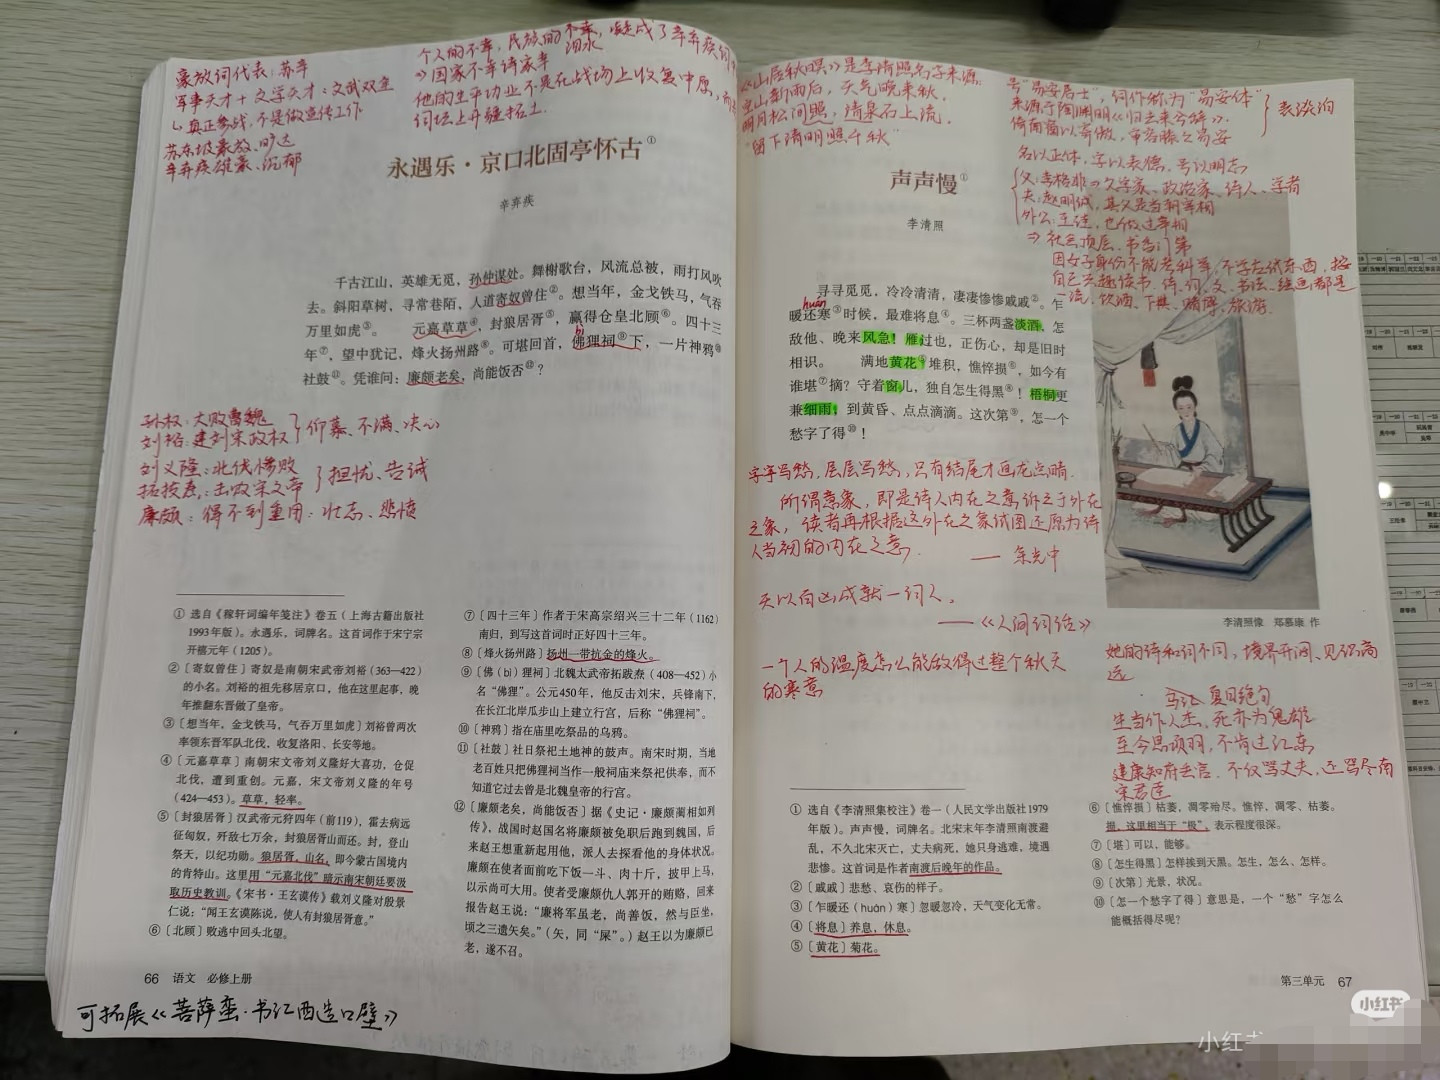 个人的不幸，民族的不幸，凝成了辛弃疾词中
泪水
⇒国家不幸诗家幸
他的生平功业不是在战场上收复中原，而
词坛上开疆拓土.
豪放词代表：苏辛
军事天才+文学天才：文武双全
↳真正参战，不是做宣传工作
苏东坡豪放、旷达
辛弃疾雄豪、沉郁
永遇乐·京口北固亭怀古①
辛弃疾
千古江山，英雄无觅，孙仲谋处。舞榭歌台，风流总被，雨打风吹
去。斜阳草树，寻常巷陌，人道寄奴曾住②。想当年，金戈铁马，气吞
万里如虎③。 元嘉草草④，封狼居胥⑤，赢得仓皇北顾⑥。四十三
bì
年⑦，望中犹记，烽火扬州路⑧。可堪回首，佛狸祠⑨下，一片神鸦⑩
社鼓⑪。凭谁问：廉颇老矣，尚能饭否⑫？
孙权：大败曹魏
刘裕：建刘宋政权
仰慕、不满、决心
刘义隆：北伐惨败
拓拔焘：击败宋文帝
担忧、告诫
廉颇：得不到重用：壮志、悲愤
① 选自《稼轩词编年笺注》卷五（上海古籍出版社
1993年版）。永遇乐，词牌名。这首词作于宋宁宗
开禧元年（1205）。
②〔寄奴曾住〕寄奴是南朝宋武帝刘裕（363—422）
的小名。刘裕的祖先移居京口，他在这里起事，晚
年推翻东晋做了皇帝。
③〔想当年，金戈铁马，气吞万里如虎〕刘裕曾两次
率领东晋军队北伐，收复洛阳、长安等地。
④〔元嘉草草〕南朝宋文帝刘义隆好大喜功，仓促
北伐，遭到重创。元嘉，宋文帝刘义隆的年号
（424—453）。草草，轻率。
⑤〔封狼居胥〕汉武帝元狩四年（前119），霍去病远
征匈奴，歼敌七万余，封狼居胥山而还。封，登山
祭天，以纪功勋。狼居胥，山名，即今蒙古国境内
的肯特山。这里用“元嘉北伐”暗示南宋朝廷要汲
取历史教训。《宋书·王玄谟传》载刘义隆对殷景
仁说：“闻王玄谟陈说，使人有封狼居胥意。”
⑥〔北顾〕败逃中回头北望。
⑦〔四十三年〕作者于宋高宗绍兴三十二年（1162）
南归，到写这首词时正好四十三年。
⑧〔烽火扬州路〕扬州一带抗金的烽火。
⑨〔佛（bì）狸祠〕北魏太武帝拓跋焘（408—452）小
名“佛狸”。公元450年，他反击刘宋，兵锋南下，
在长江北岸瓜步山上建立行宫，后称“佛狸祠”。
⑩〔神鸦〕指在庙里吃祭品的乌鸦。
⑪〔社鼓〕社日祭祀土地神的鼓声。南宋时期，当地
老百姓只把佛狸祠当作一般祠庙来祭祀供奉，而不
知道它过去曾是北魏皇帝的行宫。
⑫〔廉颇老矣，尚能饭否〕据《史记·廉颇蔺相如列
传》，战国时赵国名将廉颇被免职后跑到魏国，后
来赵王想重新起用他，派人去探看他的身体状况。
廉颇在使者面前吃下饭一斗、肉十斤，披甲上马，
以示尚可大用。使者受廉颇仇人郭开的贿赂，回来
报告赵王说：“廉将军虽老，尚善饭，然与臣坐，
顷之三遗矢矣。”（矢，同“屎”。）赵王以为廉颇已
老，遂不召。
66 语文 必修上册
可拓展《菩萨蛮·书江西造口壁》
《山居秋暝》是李清照名字来源.
空山新雨后，天气晚来秋.
明月松间照，清泉石上流.
“留下清明照千秋”
号“易安居士”，词作称为“易安体”
来源于陶渊明《归去来兮辞》.
倚南窗以寄傲，审容膝之易安
表淡泊
名以正体，字以表德，号以明志
父：李格非⇒文学家、政治家、诗人、学者
夫：赵明诚，其父是当朝宰相
外公：王珪，也做过宰相
⇒社会顶层、书香门第
因女子身份不能考科举，不学应试东西，按
自己兴趣读书、诗、词、文、书法、绘画都是
一流，饮酒、下棋、赌博、旅游.
声声慢①
李清照
寻寻觅觅，冷冷清清，凄凄惨惨戚戚②。乍
huán
暖还寒③时候，最难将息④。三杯两盏淡酒，怎
敌他、晚来风急！雁过也，正伤心，却是旧时
相识。 满地黄花⑤堆积，憔悴损⑥，如今有
谁堪⑦摘？守着窗儿，独自怎生得黑⑧！梧桐更
兼细雨，到黄昏、点点滴滴。这次第⑨，怎一个
愁字了得⑩！
字字写愁，层层写愁，只有结尾才画龙点睛.
所谓意象，即是诗人内在之意诉之于外在
之象，读者再根据这外在之象试图还原为诗
人当初的内在之意.
—— 余光中
天以百凶成就一词人.
——《人间词话》
一个人的温度怎么能敌得过整个秋天
的寒意
李清照像 郑慕康 作
她的诗和词不同，境界开阔、见识高
远
夏日绝句
生当作人杰，死亦为鬼雄
至今思项羽，不肯过江东
建康知府丢官，不仅骂丈夫，还骂尽南
宋君臣
① 选自《李清照集校注》卷一（人民文学出版社1979
年版）。声声慢，词牌名。北宋末年李清照南渡避
乱，不久北宋灭亡，丈夫病死，她只身逃难，境遇
悲惨。这首词是作者南渡后晚年的作品。
②〔戚戚〕悲愁、哀伤的样子。
③〔乍暖还（huán）寒〕忽暖忽冷，天气变化无常。
④〔将息〕养息，休息。
⑤〔黄花〕菊花。
⑥〔憔悴损〕枯萎，凋零殆尽。憔悴，凋零、枯萎。
损，这里相当于“极”，表示程度很深。
⑦〔堪〕可以，能够。
⑧〔怎生得黑〕怎样挨到天黑。怎生，怎么、怎样。
⑨〔次第〕光景，状况。
⑩〔怎一个愁字了得〕意思是，一个“愁”字怎么
能概括得尽呢？
第三单元 67
小红书
小红书